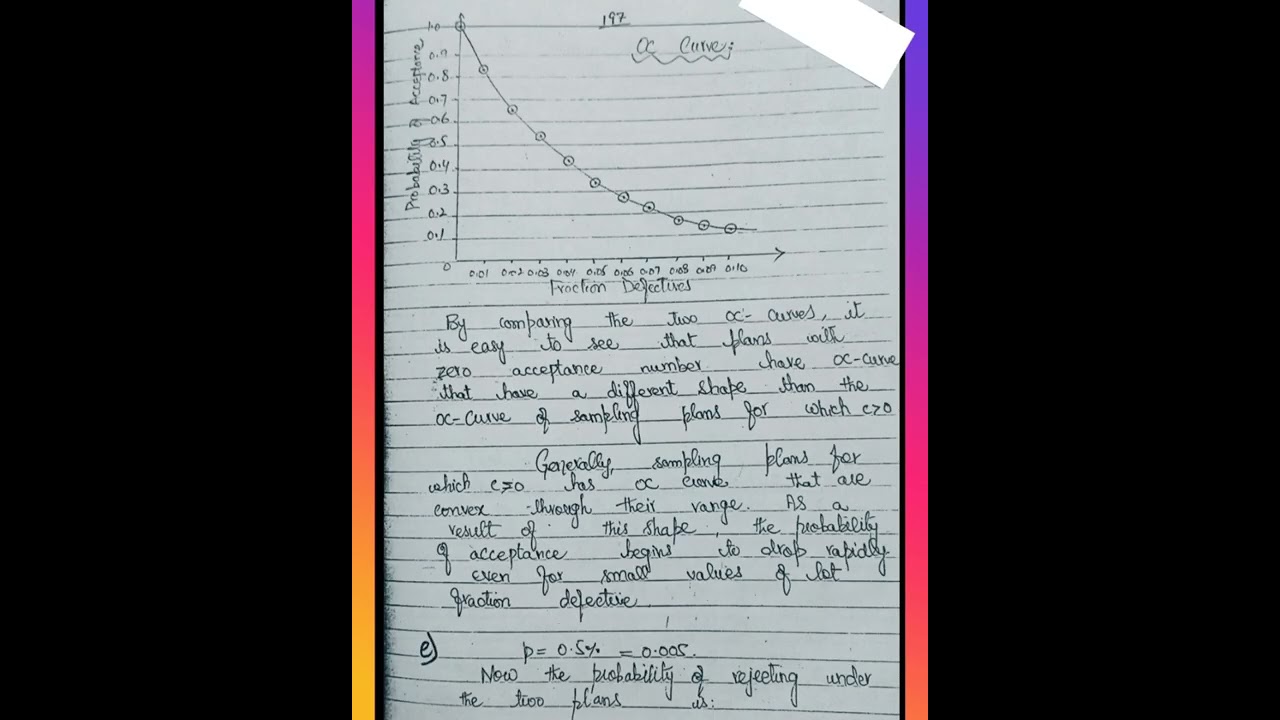 197
OC Curve:
Probability of Acceptance
1.0
0.9
0.8
0.7
0.6
0.5
0.4
0.3
0.2
0.1
0
0.01 0.02 0.03 0.04 0.05 0.06 0.07 0.08 0.09 0.10
Fraction Defectives
By comparing the two OC- curves, it
is easy to see that plans with
zero acceptance number have OC-curve
that have a different shape than the
OC-curve of sampling plans for which c>0
Generally, sampling plans for
which c=0 has OC curve that are
convex through their range. As a
result of this shape, the probability
of acceptance begins to drop rapidly
even for small values of lot
fraction defective
e) p= 0.5% = 0.005.
Now the probability of rejecting under
the two plans is: